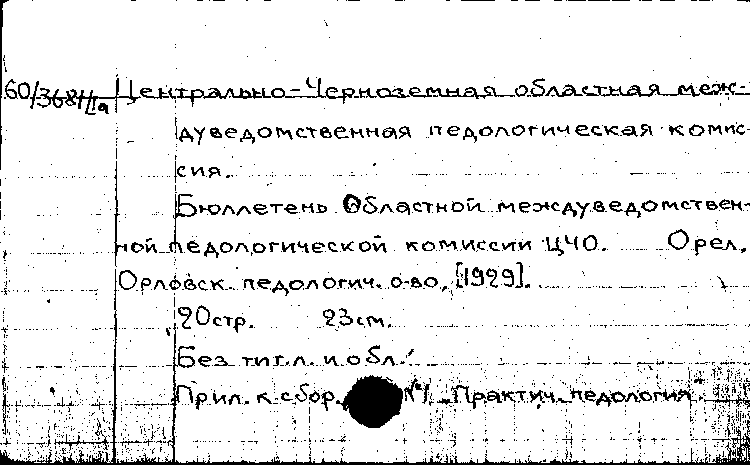 60/36811 IIа Центрально-Черноземная областная меж-
дуведомственная педологическая комис-
сия.
Бюллетень Областной междуведомствен-
ной педологической комиссии ЦЧО. Орел,
Орловск. педологич. о-во, [1929].
20 стр. 23 см.
Без тит.л. и обл.
Прил. к сбор. №1 "Практич. педология"